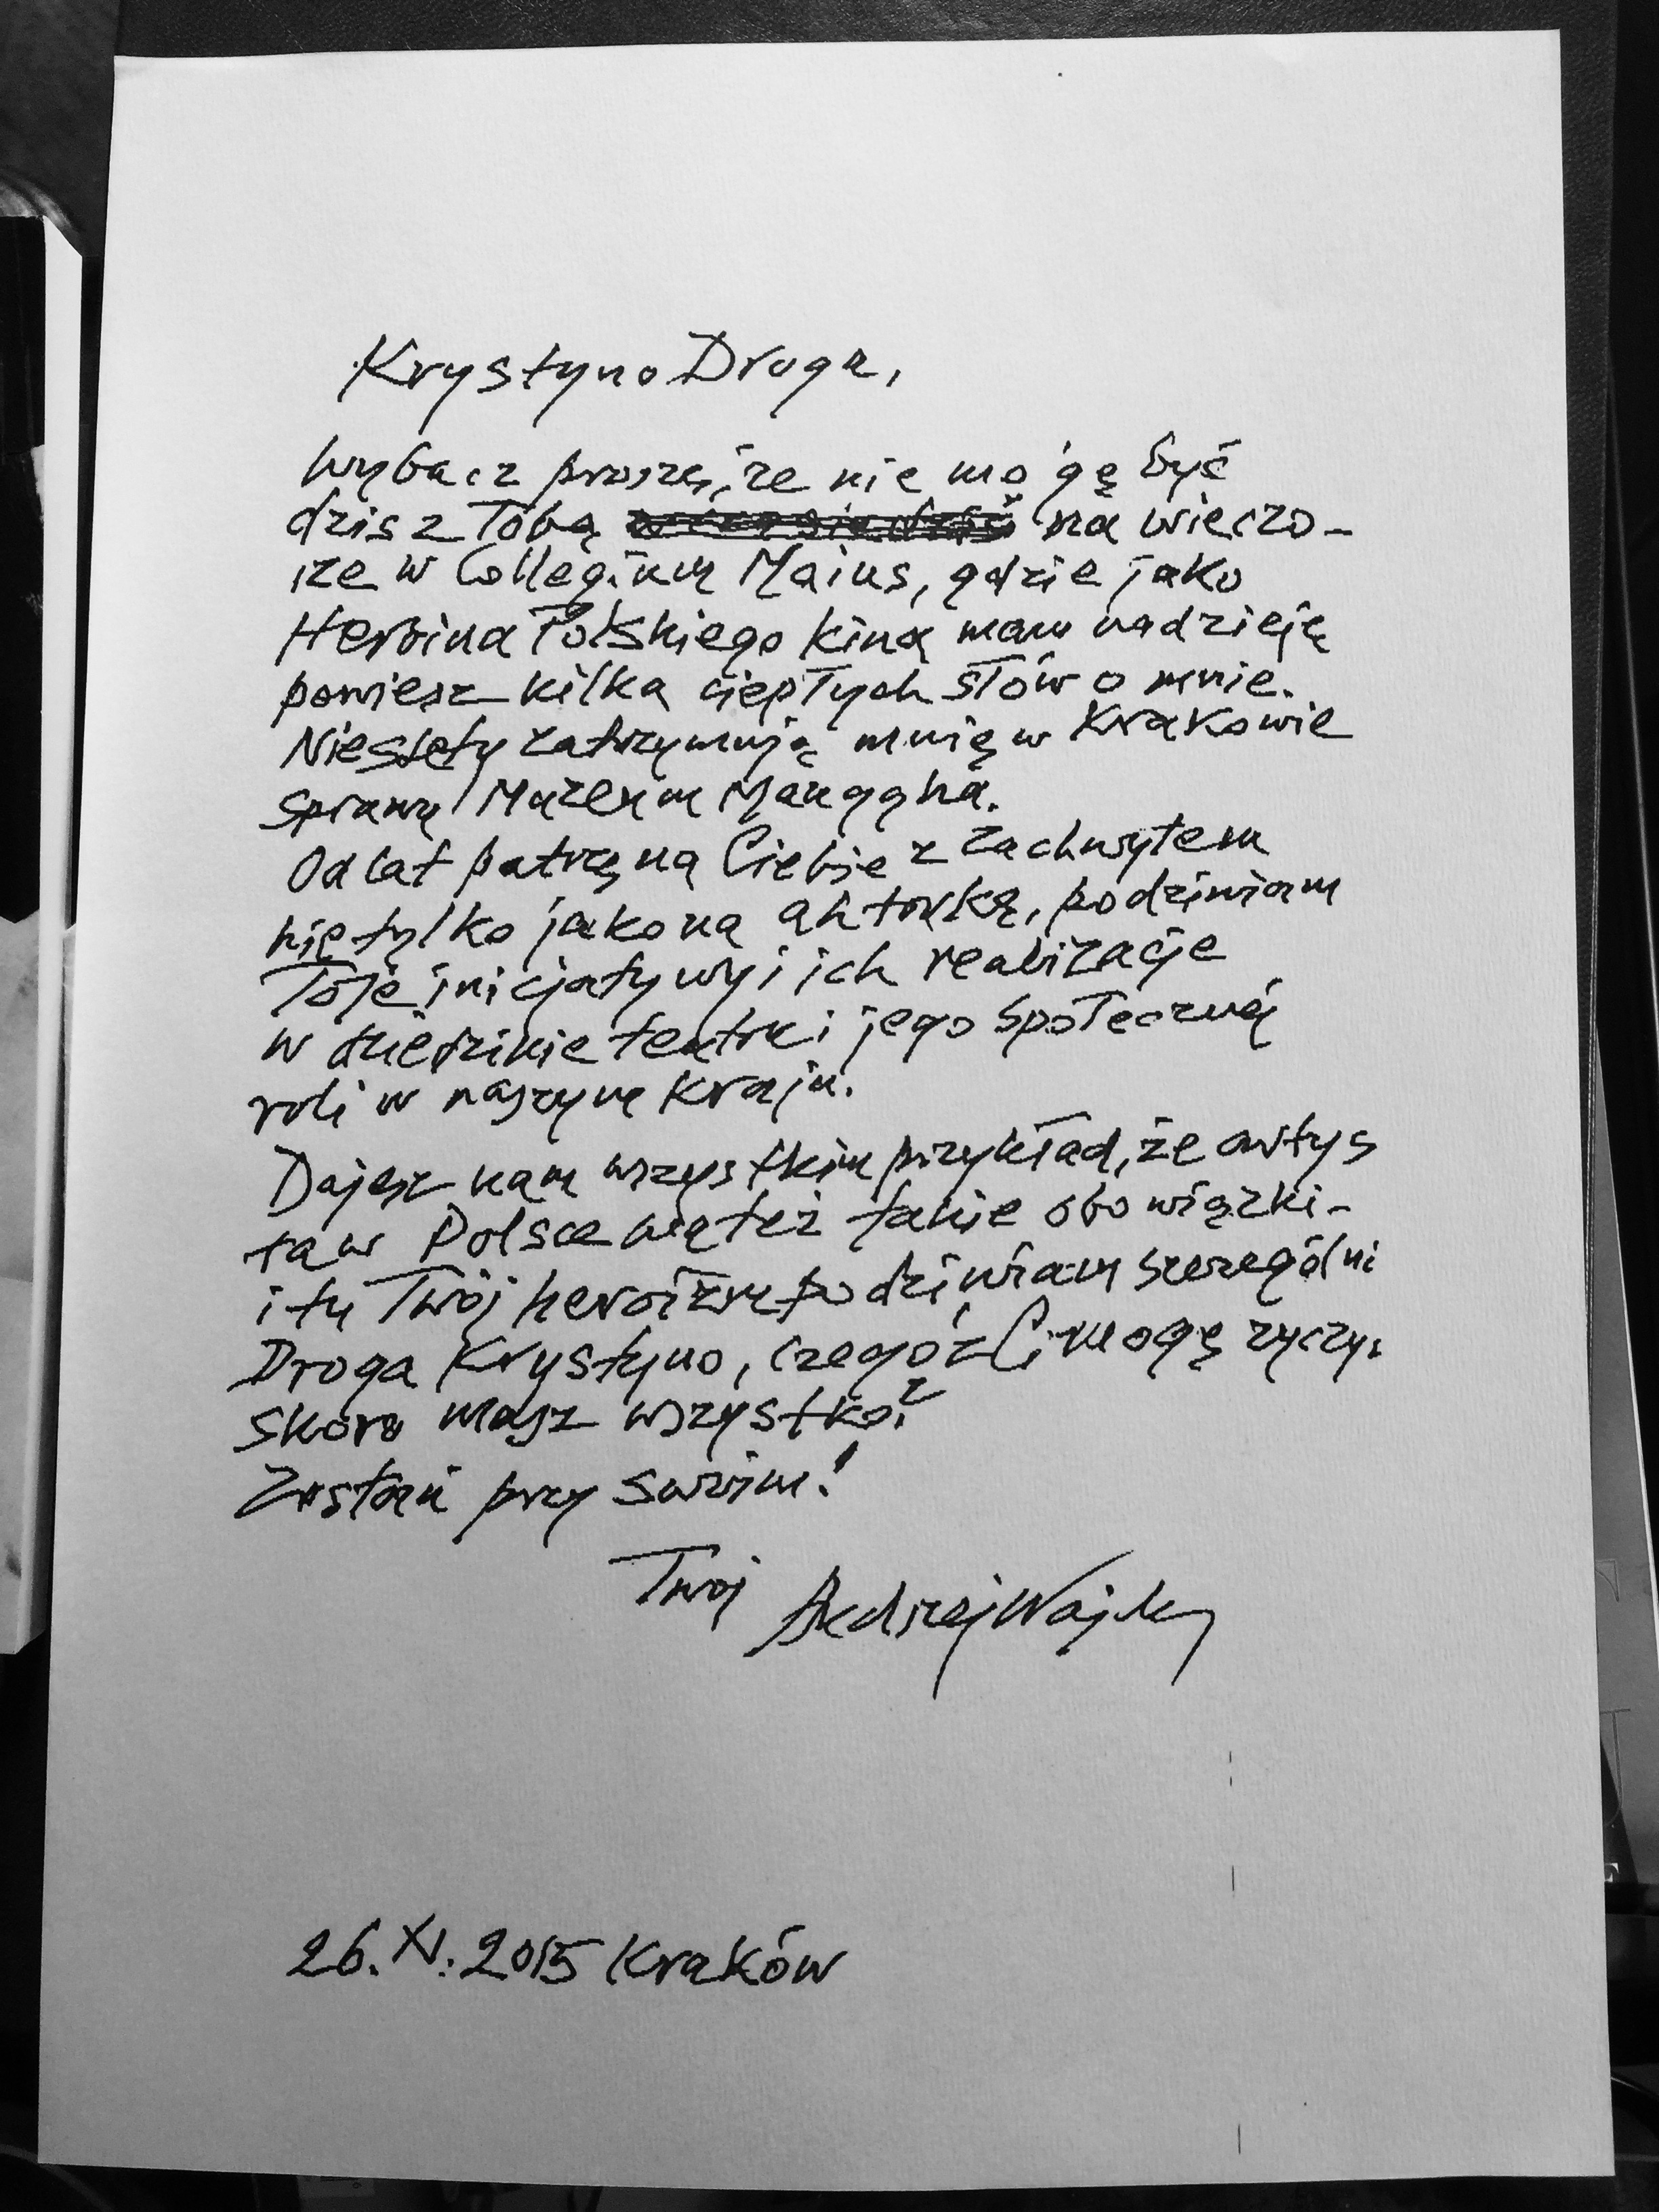 Krystyno Droga,
Wybacz proszę, że nie mogę być
dziś z Tobą na wieczo-
rze w Collegium Maius, gdzie jako
Heroina Polskiego kina mam nadzieję
powiesz kilka ciepłych słów o mnie.
Niestety zatrzymują mnie w Krakowie
sprawy Muzeum Manggha.
Od lat patrzę na Ciebie z zachwytem
nie tylko jako na aktorkę, podziwiam
Toje inicjatywy i ich realizacje
w dziedzinie teatru i jego społecznej
roli w naszym kraju.
Dajesz nam wszystkim przykład, że artys
ta w Polsce ma też takie obowiązki-
i tu Twój heroizm podziwiam szczególni
Droga Krystyno, czegóż Ci mogę życzyć
skoro masz wszystko?
Zostań przy swoim!
Twój Andrzej Wajda
26.XI.2015 Kraków